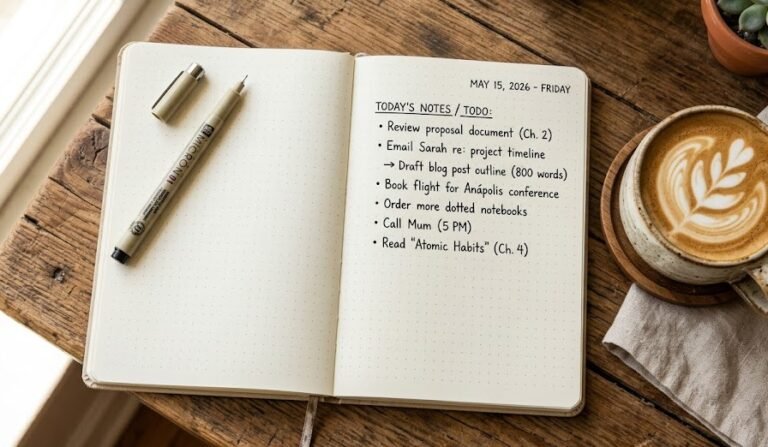 MAY 15, 2026 - FRIDAY
TODAY'S NOTES / TODO:
• Review proposal document (Ch. 2)
• Email Sarah re: project timeline
→ Draft blog post outline (800 words)
• Book flight for Anápolis conference
• Order more dotted notebooks
• Call Mum (5 PM)
• Read "Atomic Habits" (Ch. 4)